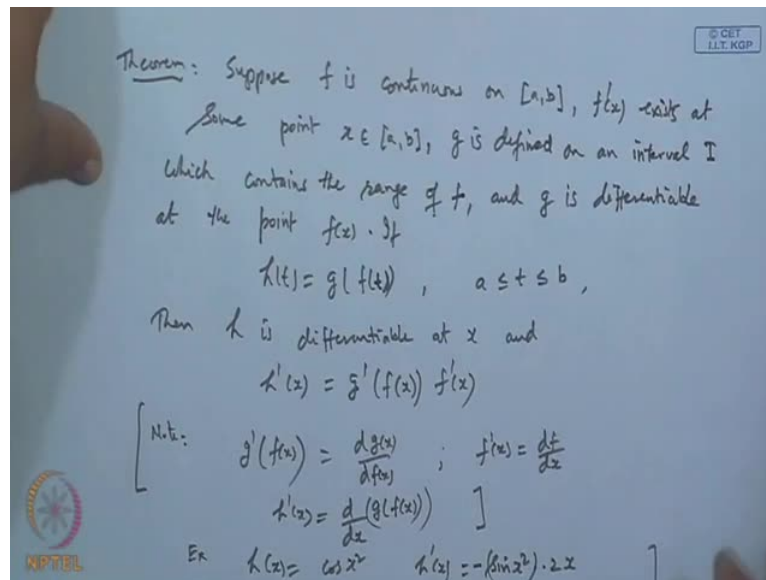 © CET
I.I.T. KGP
Theorem: Suppose f is continuous on [a,b], f'(x) exists at
Some point x ∈ [a,b], g is defined on an interval I
which contains the range of f, and g is differentiable
at the point f(x). If
h(t) = g(f(t)) , a ≤ t ≤ b ,
Then h is differentiable at x and
h'(x) = g'(f(x)) f'(x)
[Note: g'(f(x)) = dg(x)/df(x) ; f'(x) = df/dx
h'(x) = d/dx (g(f(x))) ]
Ex h(x) = cos x² h'(x) = -(sin x²)·2x ]
NPTEL